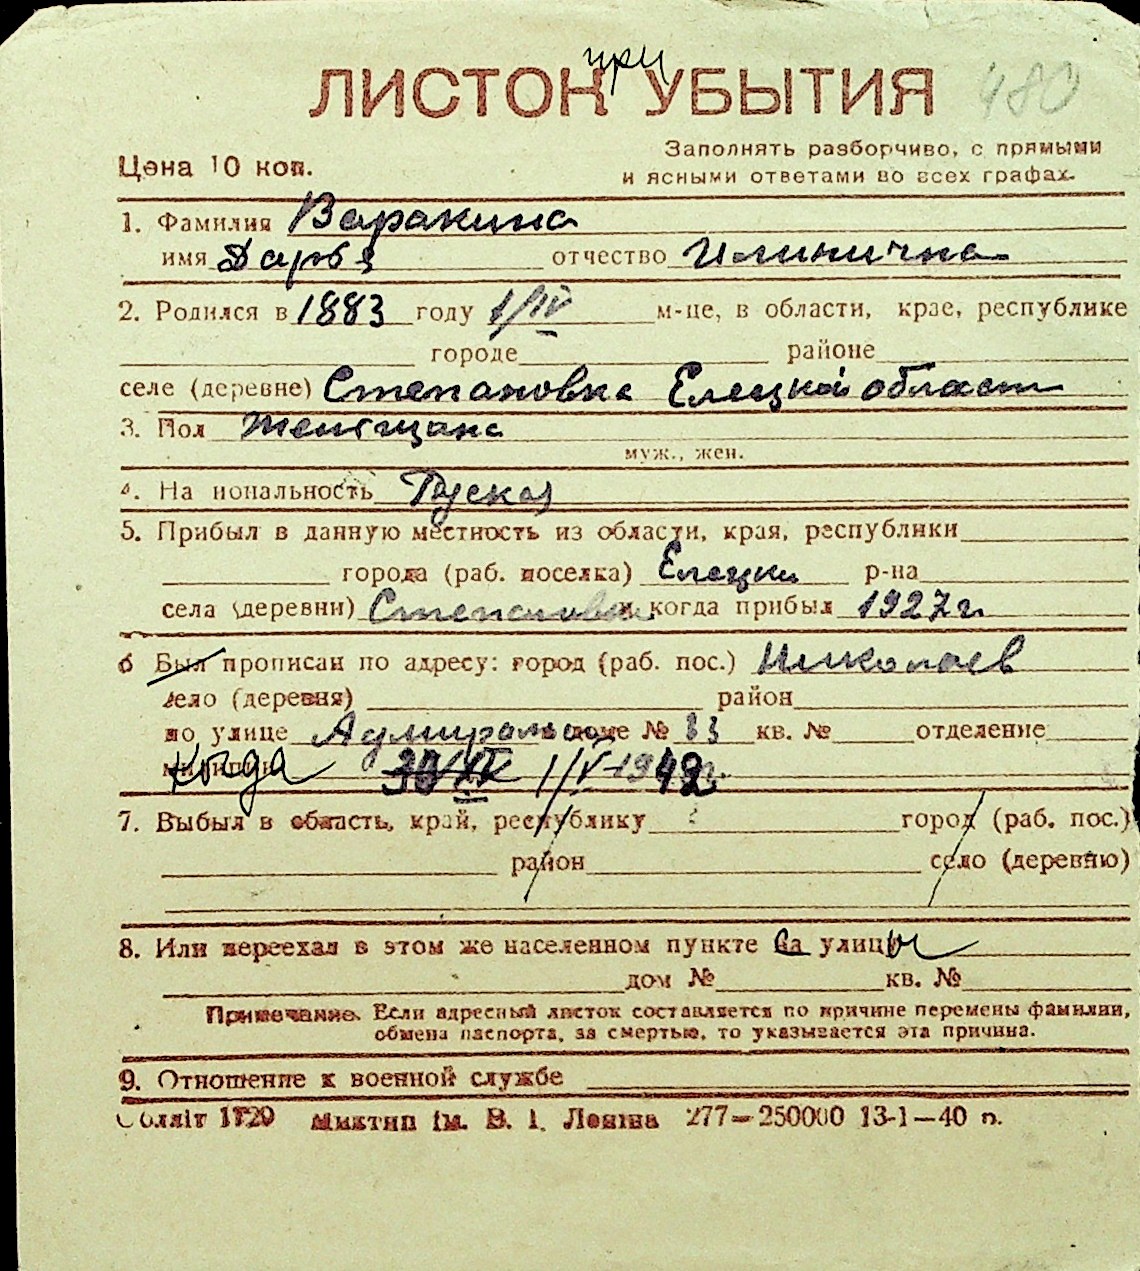 при
ЛИСТОК УБЫТИЯ 480
Цена 10 коп. Заполнять разборчиво, с прямыми
и ясными ответами во всех графах.
1. Фамилия Варакина
имя Дарья отчество Илинична
2. Родился в 1883 году 1/IV м-це, в области, крае, республике
городе районе
селе (деревне) Степановка Елецкой област
3. Пол Женщана
муж., жен.
4. На иональность Руская
5. Прибыл в данную местность из области, края, республики
города (раб. поселка) Елецки р-на
села (деревни) Степановки когда прибыл 1927 г.
6 Был прописан по адресу: город (раб. пос.) Николаев
село (деревня) район
по улице Адмиральс в доме № 33 кв. № отделение
когда 1/V-1942 г.
7. Выбыл в область, край, республику город (раб. пос.)
район село (деревню)
8. Или переехал в этом же населенном пункте са улицы
дом № кв. №
Примечание. Если адресный листок составляется по причине перемены фамилии,
обмена паспорта, за смертью, то указывается эта причина.
9. Отношение к военной службе
Облліт 1720 Миктип ім. В. І. Леніна 277—250000 13-1—40 п.